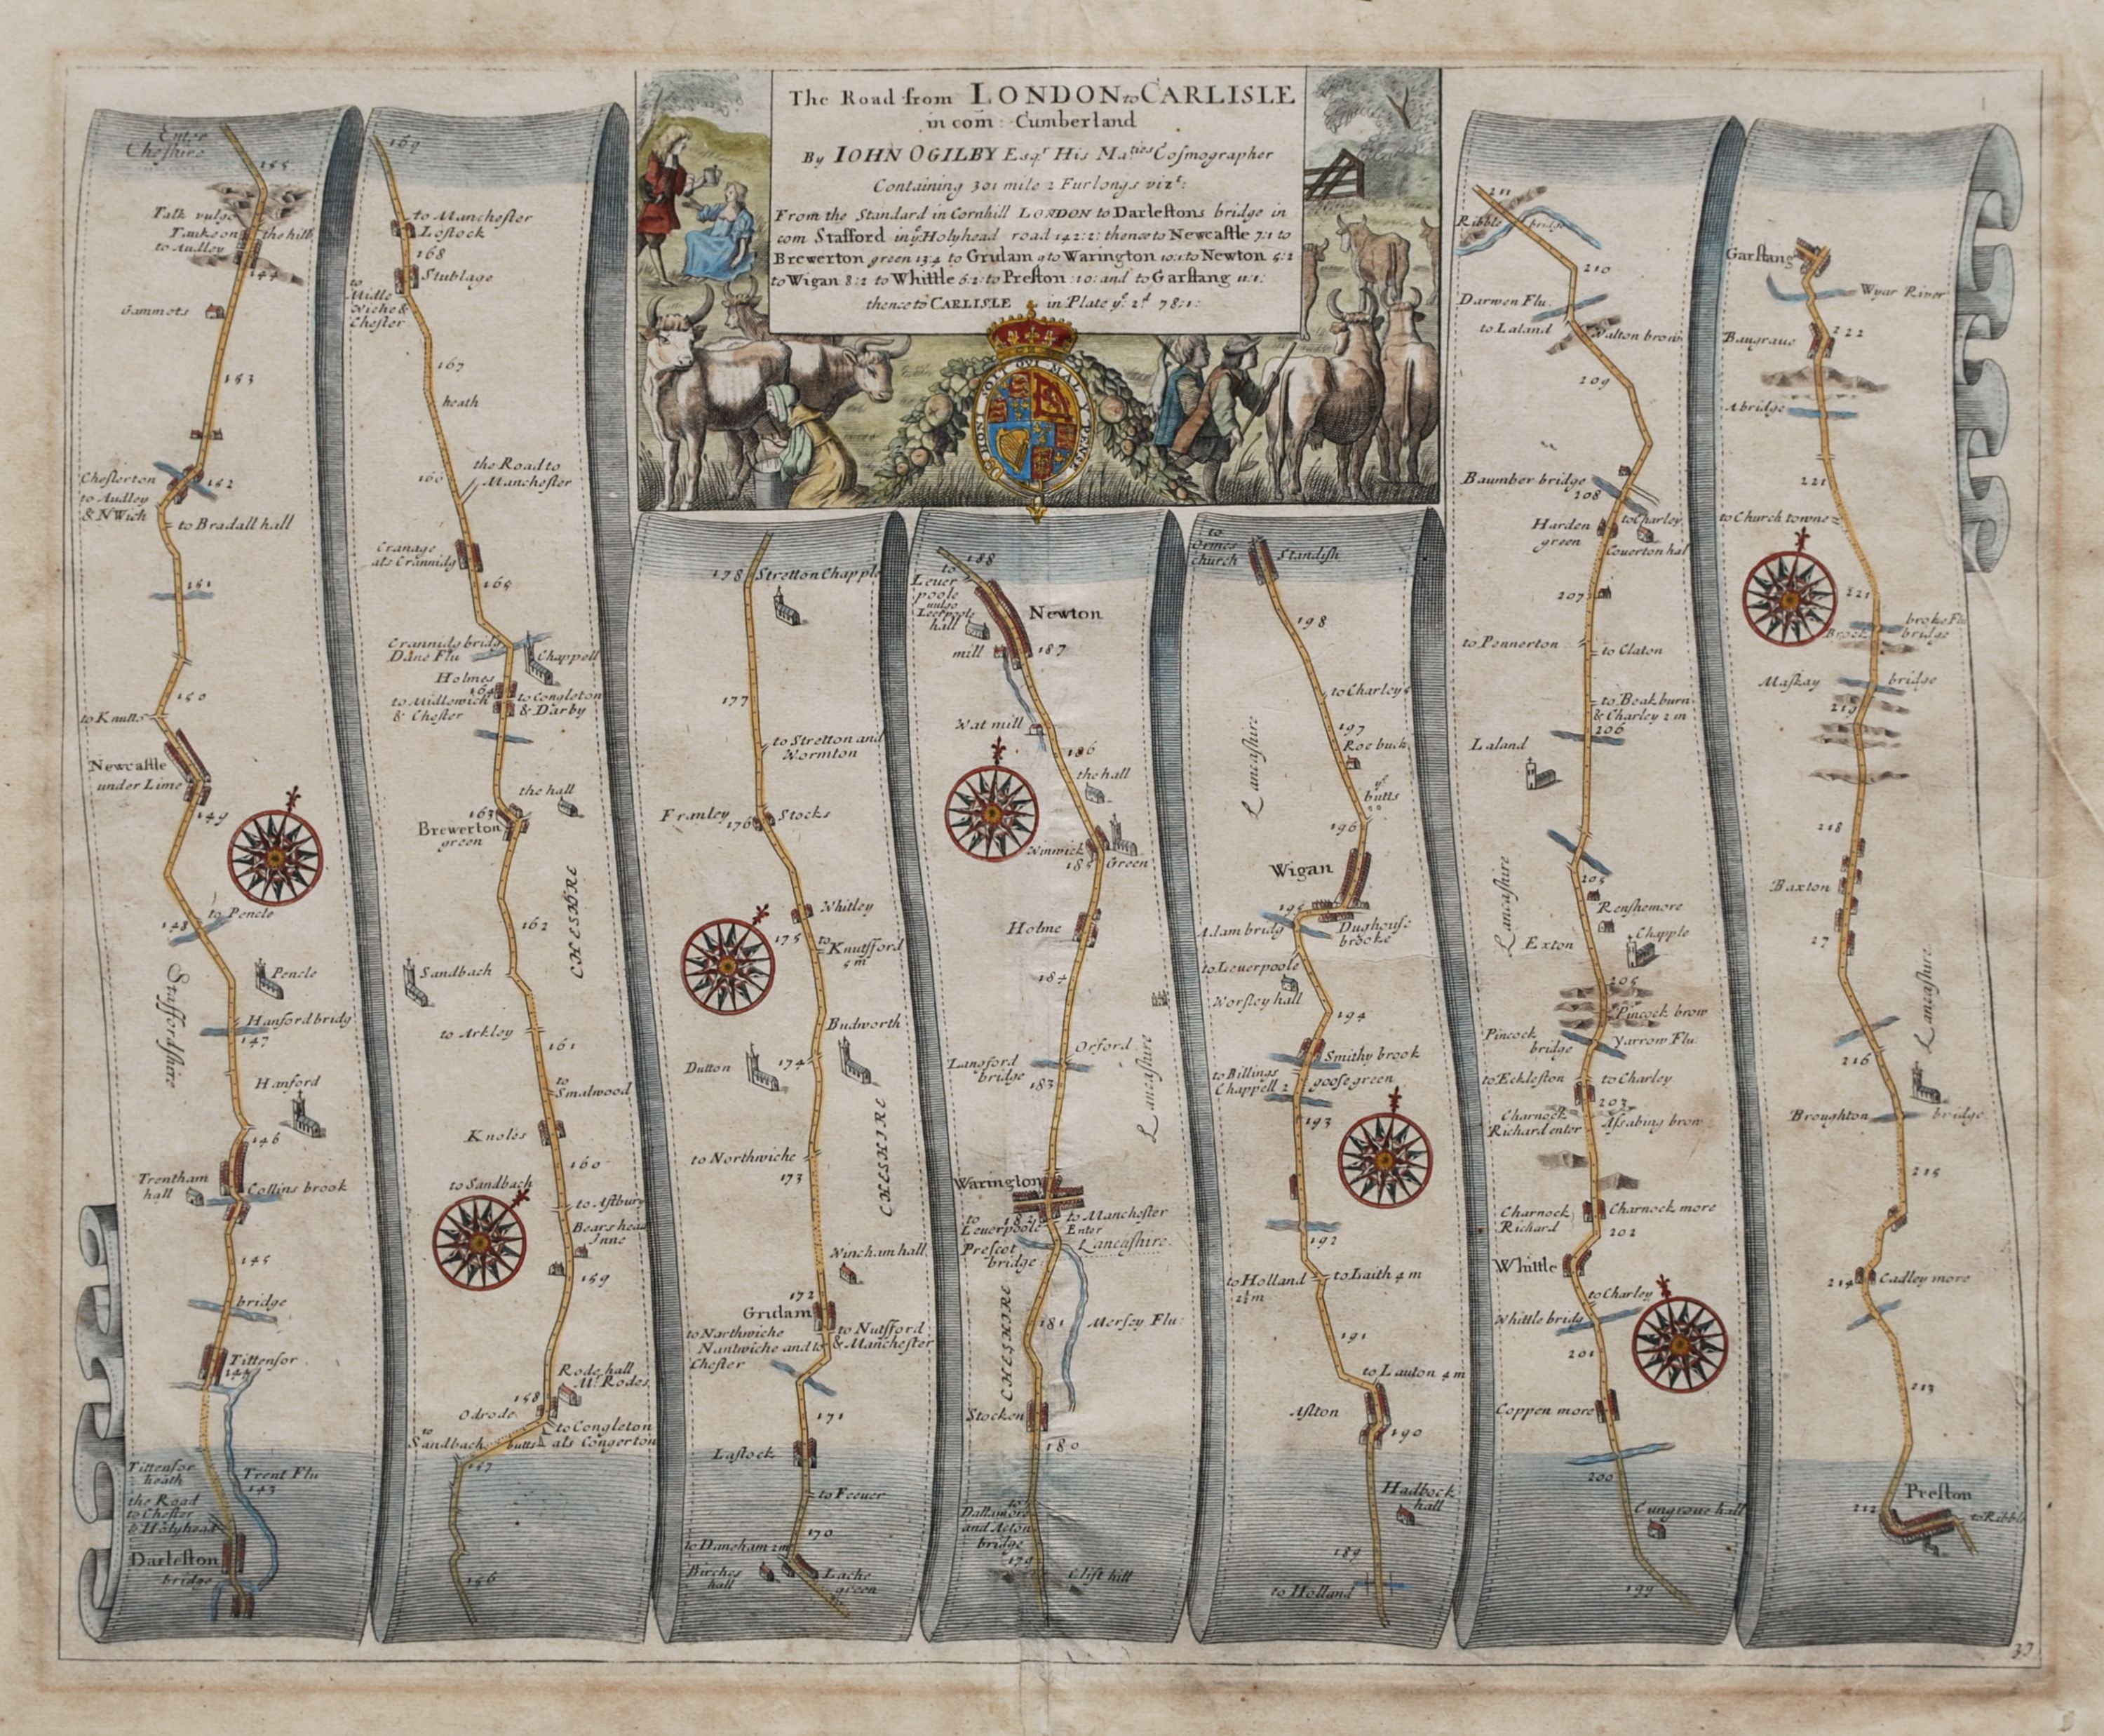 The Road from LONDON to CARLISLE
in com: Cumberland
By IOHN OGILBY Esqr. His Maties Cosmographer
Containing 301 mile 2 Furlongs vizt:
From the Standard in Cornhill LONDON to Darlestons bridge in
com Stafford in ye Holyhead road 142:2: thence to Newcastle 7:1 to
Brewerton green 13:4 to Grulam 9 to Warington 10:1 to Newton 5:2
to Wigan 8:2 to Whittle 6:2: to Preston :10: and to Garstang 11:1:
thence to CARLISLE in Plate ye. 2d. 78:1:
HONI SOIT QVI MAL Y PENSE
Enter
Cheshire
155
Talk vulgo
the hill
to Audley
154
Gammots
153
Chesterton
152
to Audley
& NWich
to Bradall hall
151
150
to Knutt
Newcastle
under Lime
149
to Pencle
148
Pencle
Staffordshire
Hanford bridg
147
Hanford
146
Trentham
hall
Collins brook
145
bridge
Tittensor
144
Tittensor
heath
Trent Flu
143
the Road
to Chester
& Holyhead
Darleston
bridge
169
to Manchester
Lostock
168
Stublage
to
Midle
Wiche &
Chester
167
heath
the Road to
Manchester
166
Cranage
als Crannidg
165
Crannidg bridg
Dane Flu
Chappell
Holmes
164
to Midlewich
& Chester
to Congleton
& Darby
the hall
163
Brewerton
green
CHESHIRE
162
Sandbach
to Arkley
161
to
Smalwood
Knoles
160
to Sandbach
to Astbury
Bears head
Inne
159
Rode hall
Mr. Rodes
158
Odrode
to
Sandbach
butts
to Congleton
als Congerton
157
156
178
Stretton Chapple
177
to Stretton and
Wormton
Franley
176
Stocks
Whitley
175
to
Knutsford
5 m
Budworth
Dutton
174
CHESHIRE
to Northwiche
173
Wincham hall
172
Grulam
to Northwiche
Nantwiche and to
Chester
to Nutsford
& Manchester
171
Lastock
to Feever
170
to Daneham 2m
Birches
hall
Lache
green
188
to
Lever
poole
vulgo
Leerpoole
hall
Newton
mill
187
Wat mill
186
the hall
Winwick
185
Green
Holme
184
Orford
Langford
bridge
183
Lancashire
Warington
182
to
Leverpoole
to Manchester
Enter
Lancashire
Prescot
bridge
CHESHIRE
181
Mersey Flu:
Stocken
180
to
Dallamore
and Acton
bridge
179
Clift hill
to
Ormes
church
Standish
198
to Charley
197
Roe buck
Lancashire
ye
butts
196
Wigan
195
Adam bridg
Dughouse
brooke
to Leverpoole
Worsley hall
194
Smithy brook
to Billings
Chappell 2
goose green
193
192
to Holland
2½m
to Laith 4 m
191
to Lauton 4 m
Aslton
190
Hadbock
hall
189
to Holland
211
Ribble
bridge
210
Darwen Flu:
to Laland
Walton brow
209
Baumber bridge
208
Harden
green
to Charley
Couerton hal
207
to Pennerton
to Claton
to Beakburn
& Charley 2 m
206
Laland
205
Lancashire
Renshemore
Exton
Chapple
205
Pincock brow
Pincock
bridge
Yarrow Flu:
to Eckleston
to Charley
203
Charnock
Richard enter
Assabing brow
Charnock
Richard
Charnock more
202
Whittle
to Charley
Whittle bridg
201
Coppen more
200
Cungroue hall
199
Garstang
Wyar River
222
Baugraue
A bridge
221
to Church towne
221
broke Flu
Brock
bridge
Maskay
bridge
219
218
Baxton
27
Lancashire
216
Broughton
bridge
215
214
Cadley more
213
Preston
212
to Ribble
37